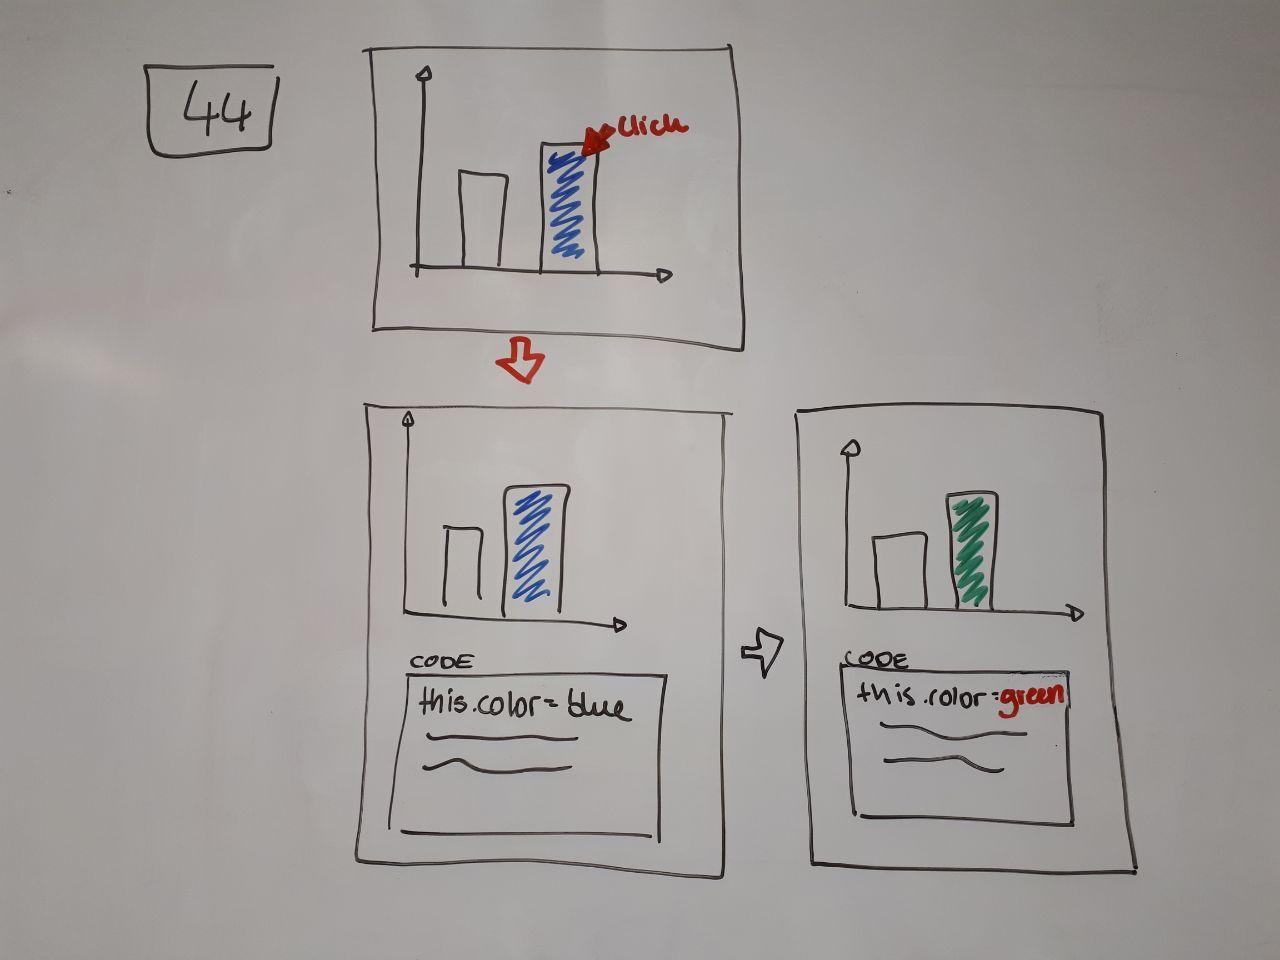 44
click
CODE
this.color=blue
CODE
this.color=green